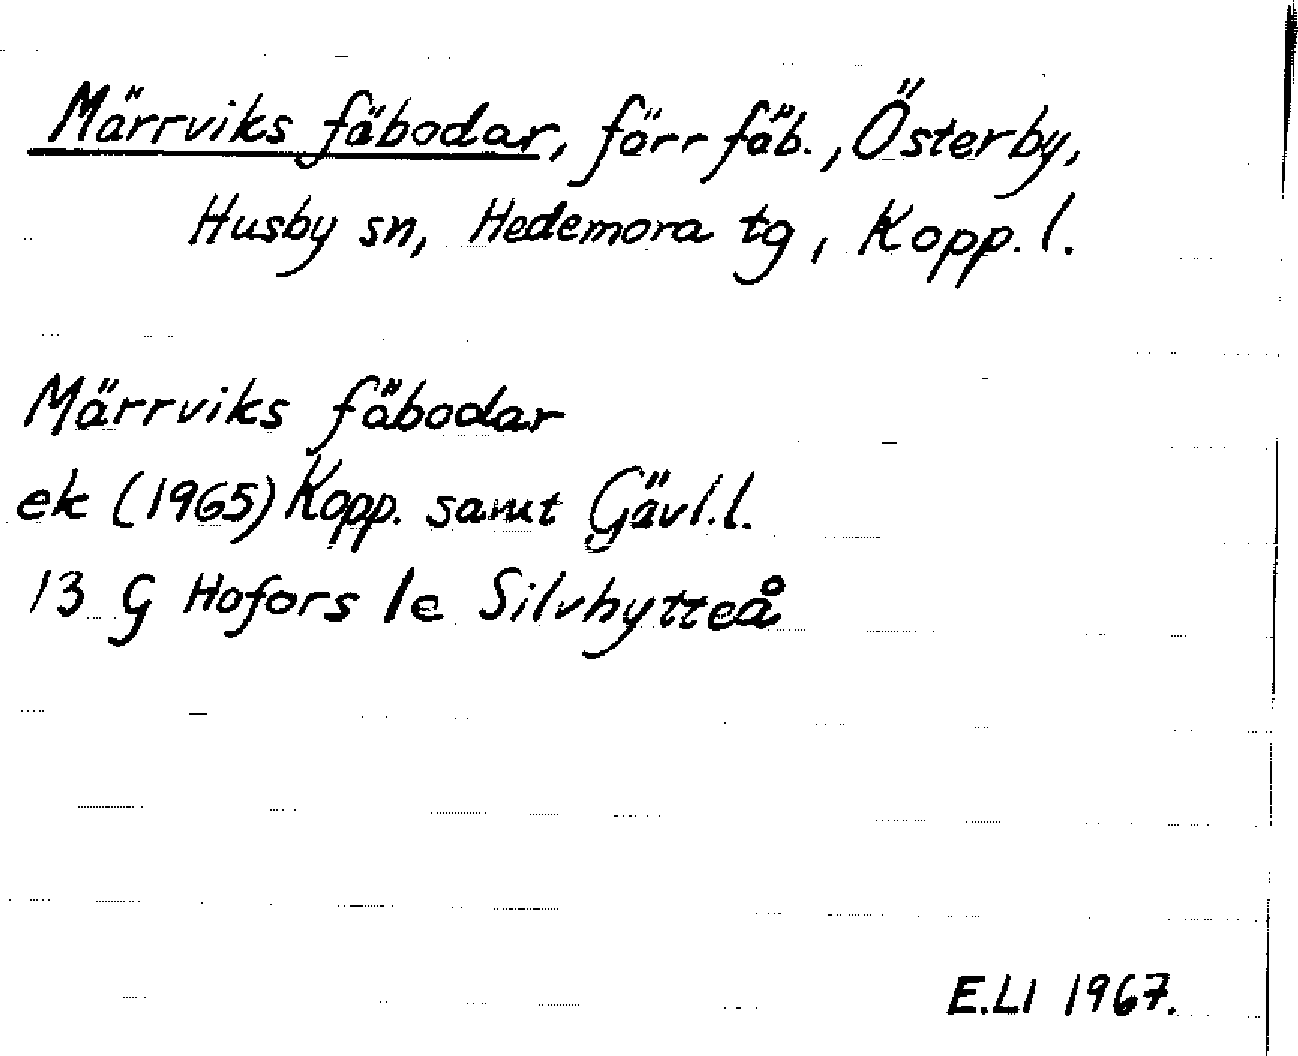 Märrviks fäbodar, förr fäb., Österby,
Husby sn, Hedemora tg, Kopp. l.
Märrviks fäbodar
ek (1965) Kopp. samt Gävl. l.
13 G Hofors 1e Silvhytteå
E.Ll 1967.